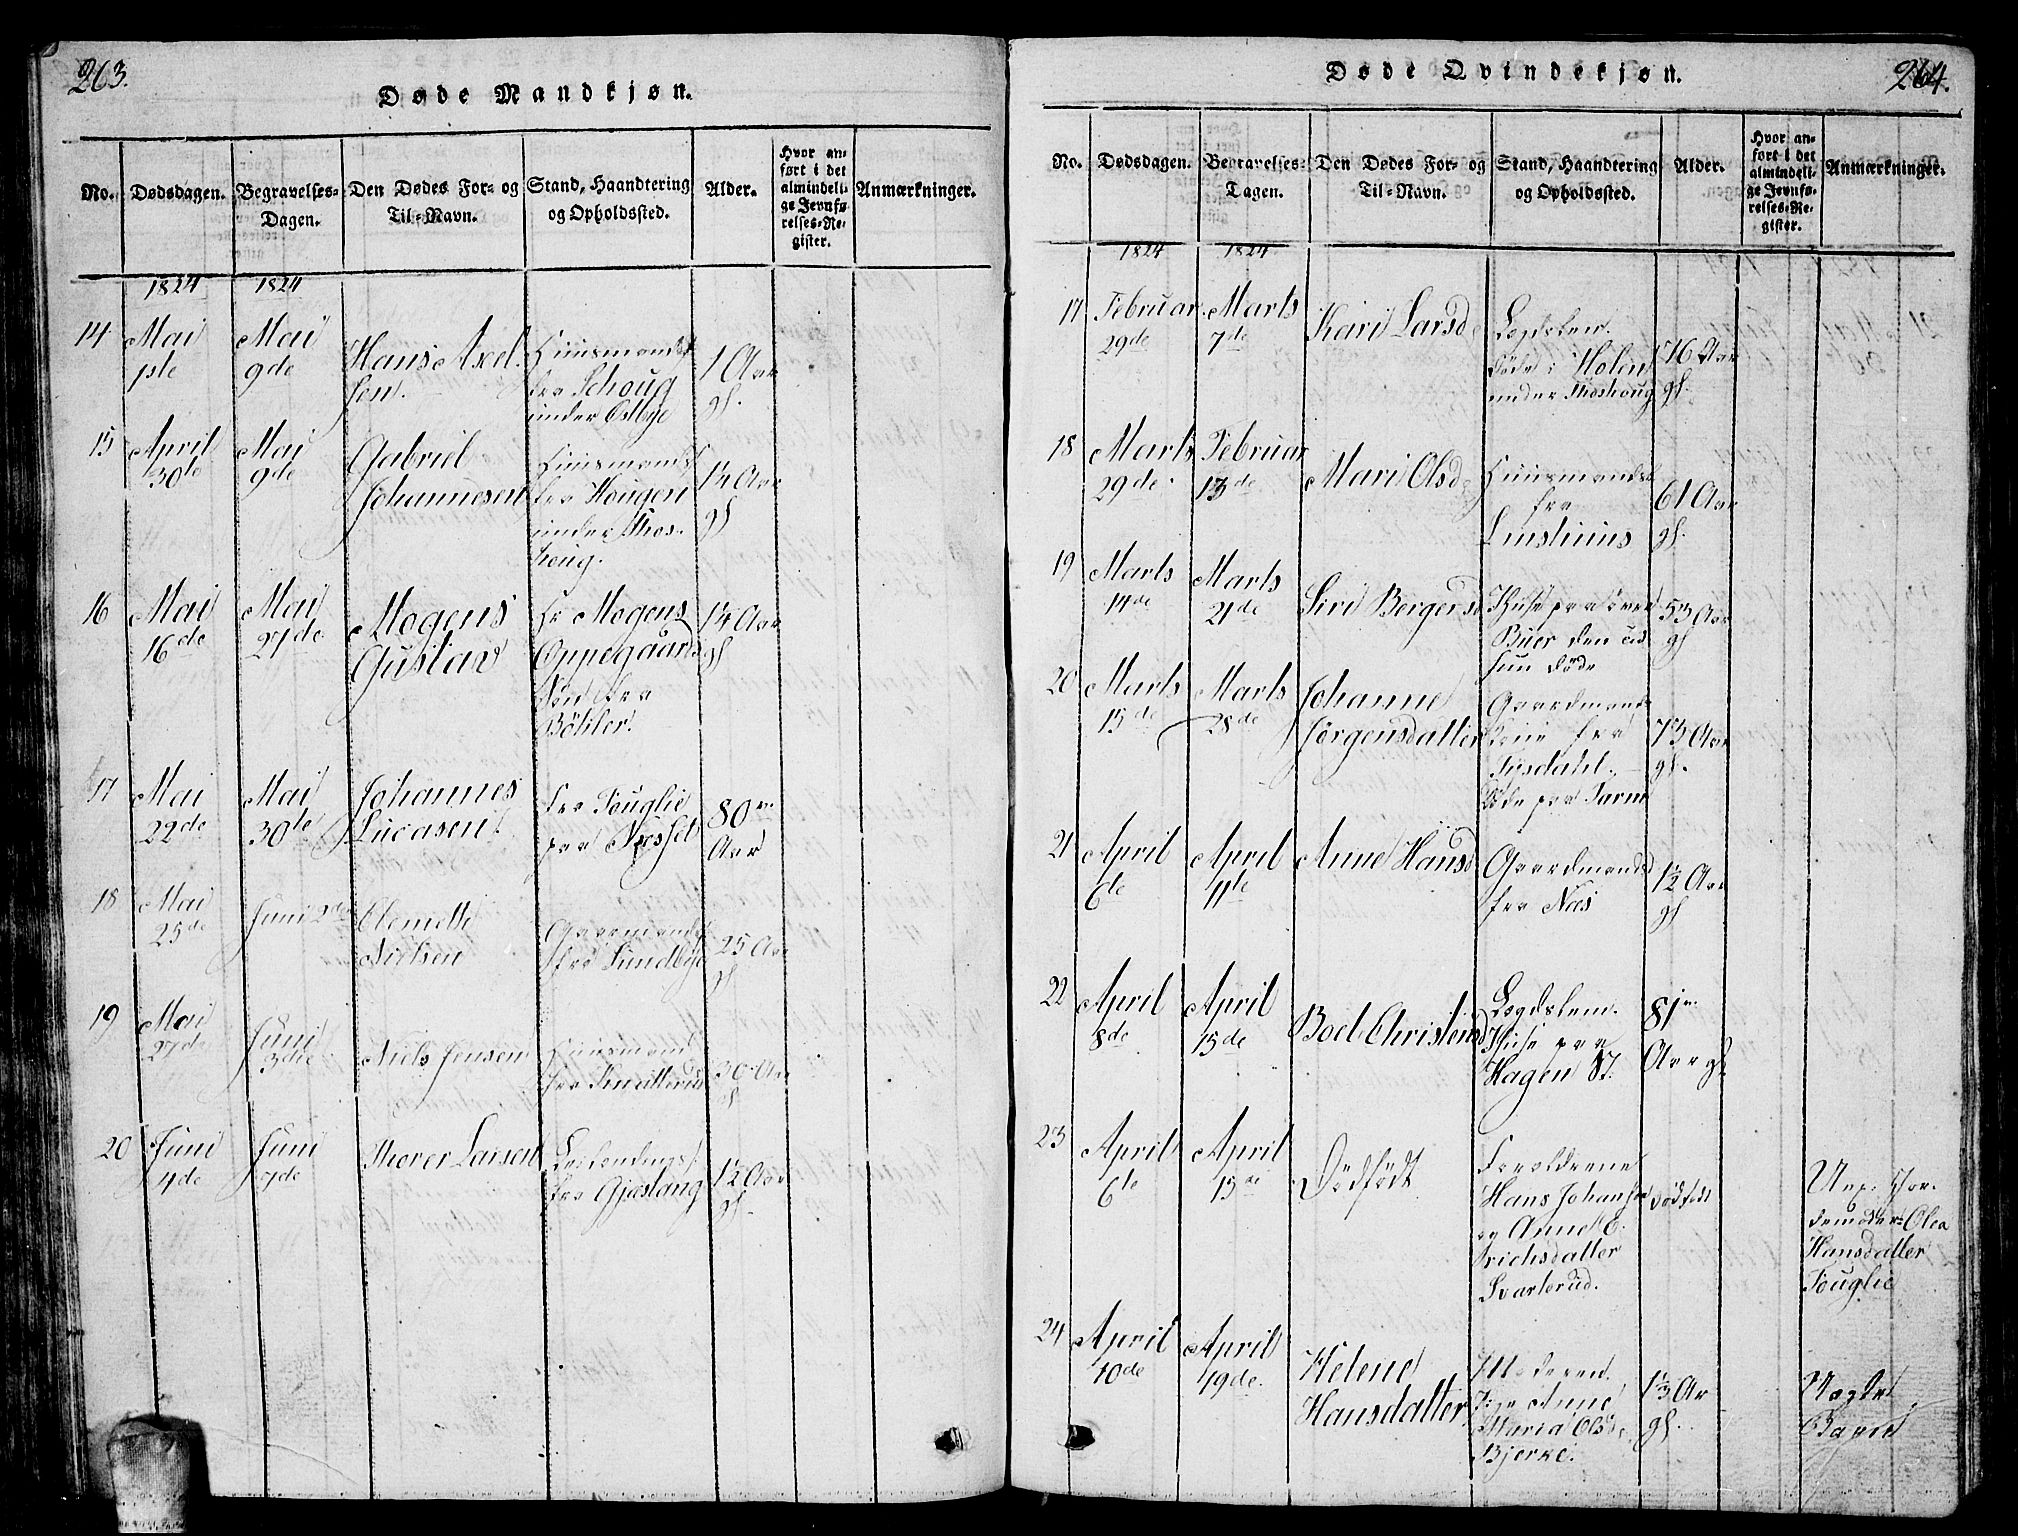 263.
Døde Mandkjøn.
No.
Dødsdagen.
Begravelses-
Dagen.
Den Dødes For- og
Til-Navn.
Stand, Haandtering
og Opholdssted.
Alder.
Hvor an-
ført i det
almindeli-
ge Jevnfø-
relses-Re-
gister.
Anmærkninger.
1824
1824
14
Mai
1ste
Mai
9de
Hans Axel-
sen.
Huusmands
fra Schoug
under Ostbye
1 Aar
gl.
15
April
30te
Mai
9de
Gabriel
Johannesen
Huusmands
fra Hougen
under Thos-
houg.
Aar
gl
16
Mai
16de
Mai
27de
Mogens
Gustav
Hr Mogens
Oppegaards
Søn fra
Böhler.
Aar
gl
17
Mai
22de
Mai
30te
Johannes
Lucasen
fra Fouglie
paa Næsset
80
Aar
18
Mai
25de
Juni 2de
Clemett
Nielsen
Gaarmands
fra Sundbye
25 Aar
gl
19
Mai
27de
Juni
3die
Niels Jensen
Huusmand
fra
30 Aar
gl
20
Juni
4de
Juni
7de
Thorer Larsen
fra Gjæslang
1½ Aar
gl.
264.
Døde Qvindekjøn.
No.
Dødsdagen.
Begravelses-
Dagen.
Den Dødes For- og
Til-Navn.
Stand, Haandtering
og Opholdssted.
Alder.
Hvor an-
ført i det
almindeli-
ge Jevnfø-
relses-Re-
gister.
Anmærkninger.
1824
1824
17
Februar
29de
Marts
7de
Kari Larsd
Legdslem.
døde i Holen
under Thoshoug
76 Aar
gl.
18
Marts
29de
Februar
13de
Mari Olsd
Huusmands
fra
61 Aar
gl.
19
Marts
14de
Marts
21de
Siri Bergersd
Huse paa över
Buer den
hun døde
53 Aar
gl
20
Marts
15de
Marts
28de
Johanne
Jörgensdatter
Gaardmands
kone fra
døde paa
73 Aar
gl.
21
April
6te
April
11te
Anne Hansd
Gaardmands
fra Næs
1½ Aar
gl
22
April
8de
April
15de
Boel Christensd
Legdslem.
Huse paa
Hagen
81
Aar gl
23
April
6te
April
Dödfödt
Forældrene
Hans Johansen
og Anne E-
richsdatter
Svarterud.
dödfødt
Jor-
demoder Olea
Hansdatter
Fouglie
24
April
10de
April
19de
Helene
Hansdatter
Moderen
Pige Anne
Maria Olsd
Bjerke.
Aar
gl.
Uægte
Barn